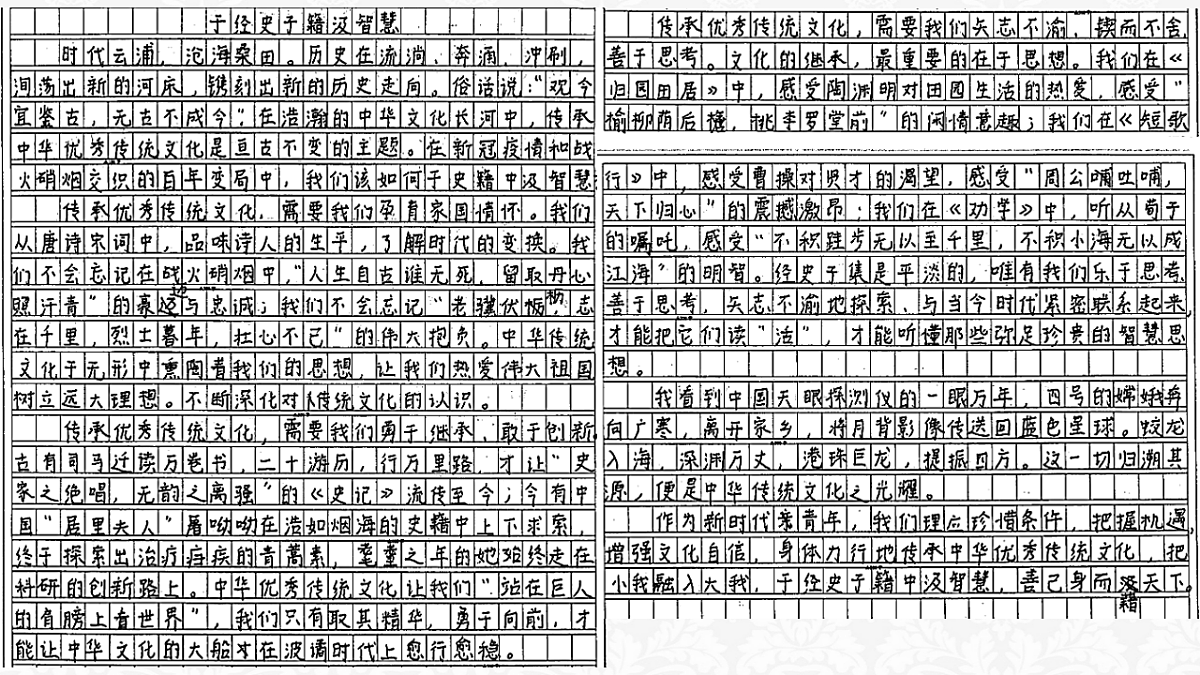 于经史子籍汲智慧
时代云浦，沧海桑田。历史在流淌、奔涌、冲刷，
涧荡出新的河床，镌刻出新的历史走向。俗话说："观今
宜鉴古，无古不成今"：在浩瀚的中华文化长河中，传承
中华优秀传统文化是亘古不变的主题。在新冠疫情和战
火硝烟交织的百年变局中，我们该如何于史籍中汲智慧
传承优秀传统文化，需要我们孕育家国情怀。我们
从唐诗宋词中，品味诗人的生平，了解时代的变换。我
们不会忘记在战火硝烟中，"人生自古谁无死，留取丹心
照汗青"的豪迈与忠诚；我们不会忘记"老骥伏枥，志
在千里，烈士暮年，壮心不已"的伟大抱负。中华传统
文化于无形中熏陶着我们的思想，让我们热爱伟大祖国
树立远大理想。不断深化对传统文化的认识。
传承优秀传统文化，需要我们勇于继承、敢于创新。
古有司马迁读万卷书，二十游历，行万里路，才让"史
家之绝唱，无韵之离骚"的《史记》流传至今；今有中
国"居里夫人"屠呦呦在浩如烟海的史籍中上下求索，
终于探索出治疗疟疾的青蒿素，耄耋之年的她始终走在
科研的创新路上。中华优秀传统文化让我们"站在巨人
的肩膀上看世界"，我们只有取其精华，勇于向前，才
能让中华文化的大船才在波涛时代上愈行愈稳。
传承优秀传统文化，需要我们矢志不渝、锲而不舍，
善于思考。文化的继承，最重要的在于思想。我们在《
归园田居》中，感受陶渊明对田园生活的热爱，感受"
榆柳荫后檐，桃李罗堂前"的闲情意趣；我们在《短歌
行》中，感受曹操对贤才的渴望，感受"周公哺吐哺，
天下归心"的震撼激昂；我们在《劝学》中，听从荀子
的嘱咐，感受"不积跬步无以至千里，不积小海无以成
江海"的明智。经史子集是平淡的，唯有我们乐于思考、
善于思考，矢志不渝地探索、与当今时代紧密联系起来，
才能把它们读"活"，才能听懂那些弥足珍贵的智慧思
想。
我看到中国天眼探测仪的一眼万年，四号的嫦娥奔
向广寒，离开家乡，将月背影像传送回蓝色星球。蛟龙
入海，深渊万丈，港珠巨龙，提振四方。这一切归溯其
源，便是中华传统文化之光耀。
作为新时代青年，我们理应珍惜条件，把握机遇
增强文化自信，身体力行地传承中华优秀传统文化，把
小我融入大我，于经史子籍中汲智慧，善己身而济天下。
籍